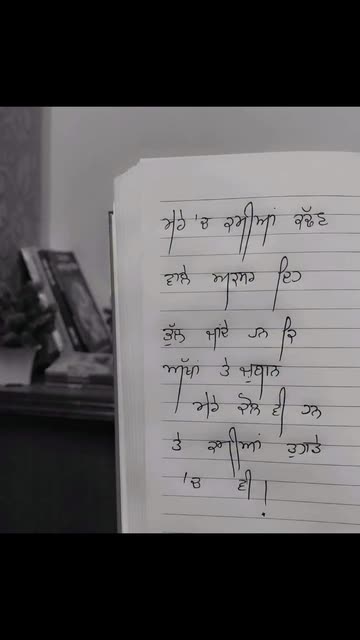 ਮੇਰੇ 'ਚ ਕਮੀਆਂ ਕੱਢਣ
ਵਾਲੇ ਅਕਸਰ ਇਹ
ਭੁੱਲ ਜਾਂਦੇ ਹਨ ਕਿ
ਅੱਖਾਂ ਤੇ ਜ਼ੁਬਾਨ
ਮੇਰੇ ਕੋਲ ਵੀ ਹਨ
ਤੇ ਕਮੀਆਂ ਤੁਹਾਡੇ
'ਚ ਵੀ !